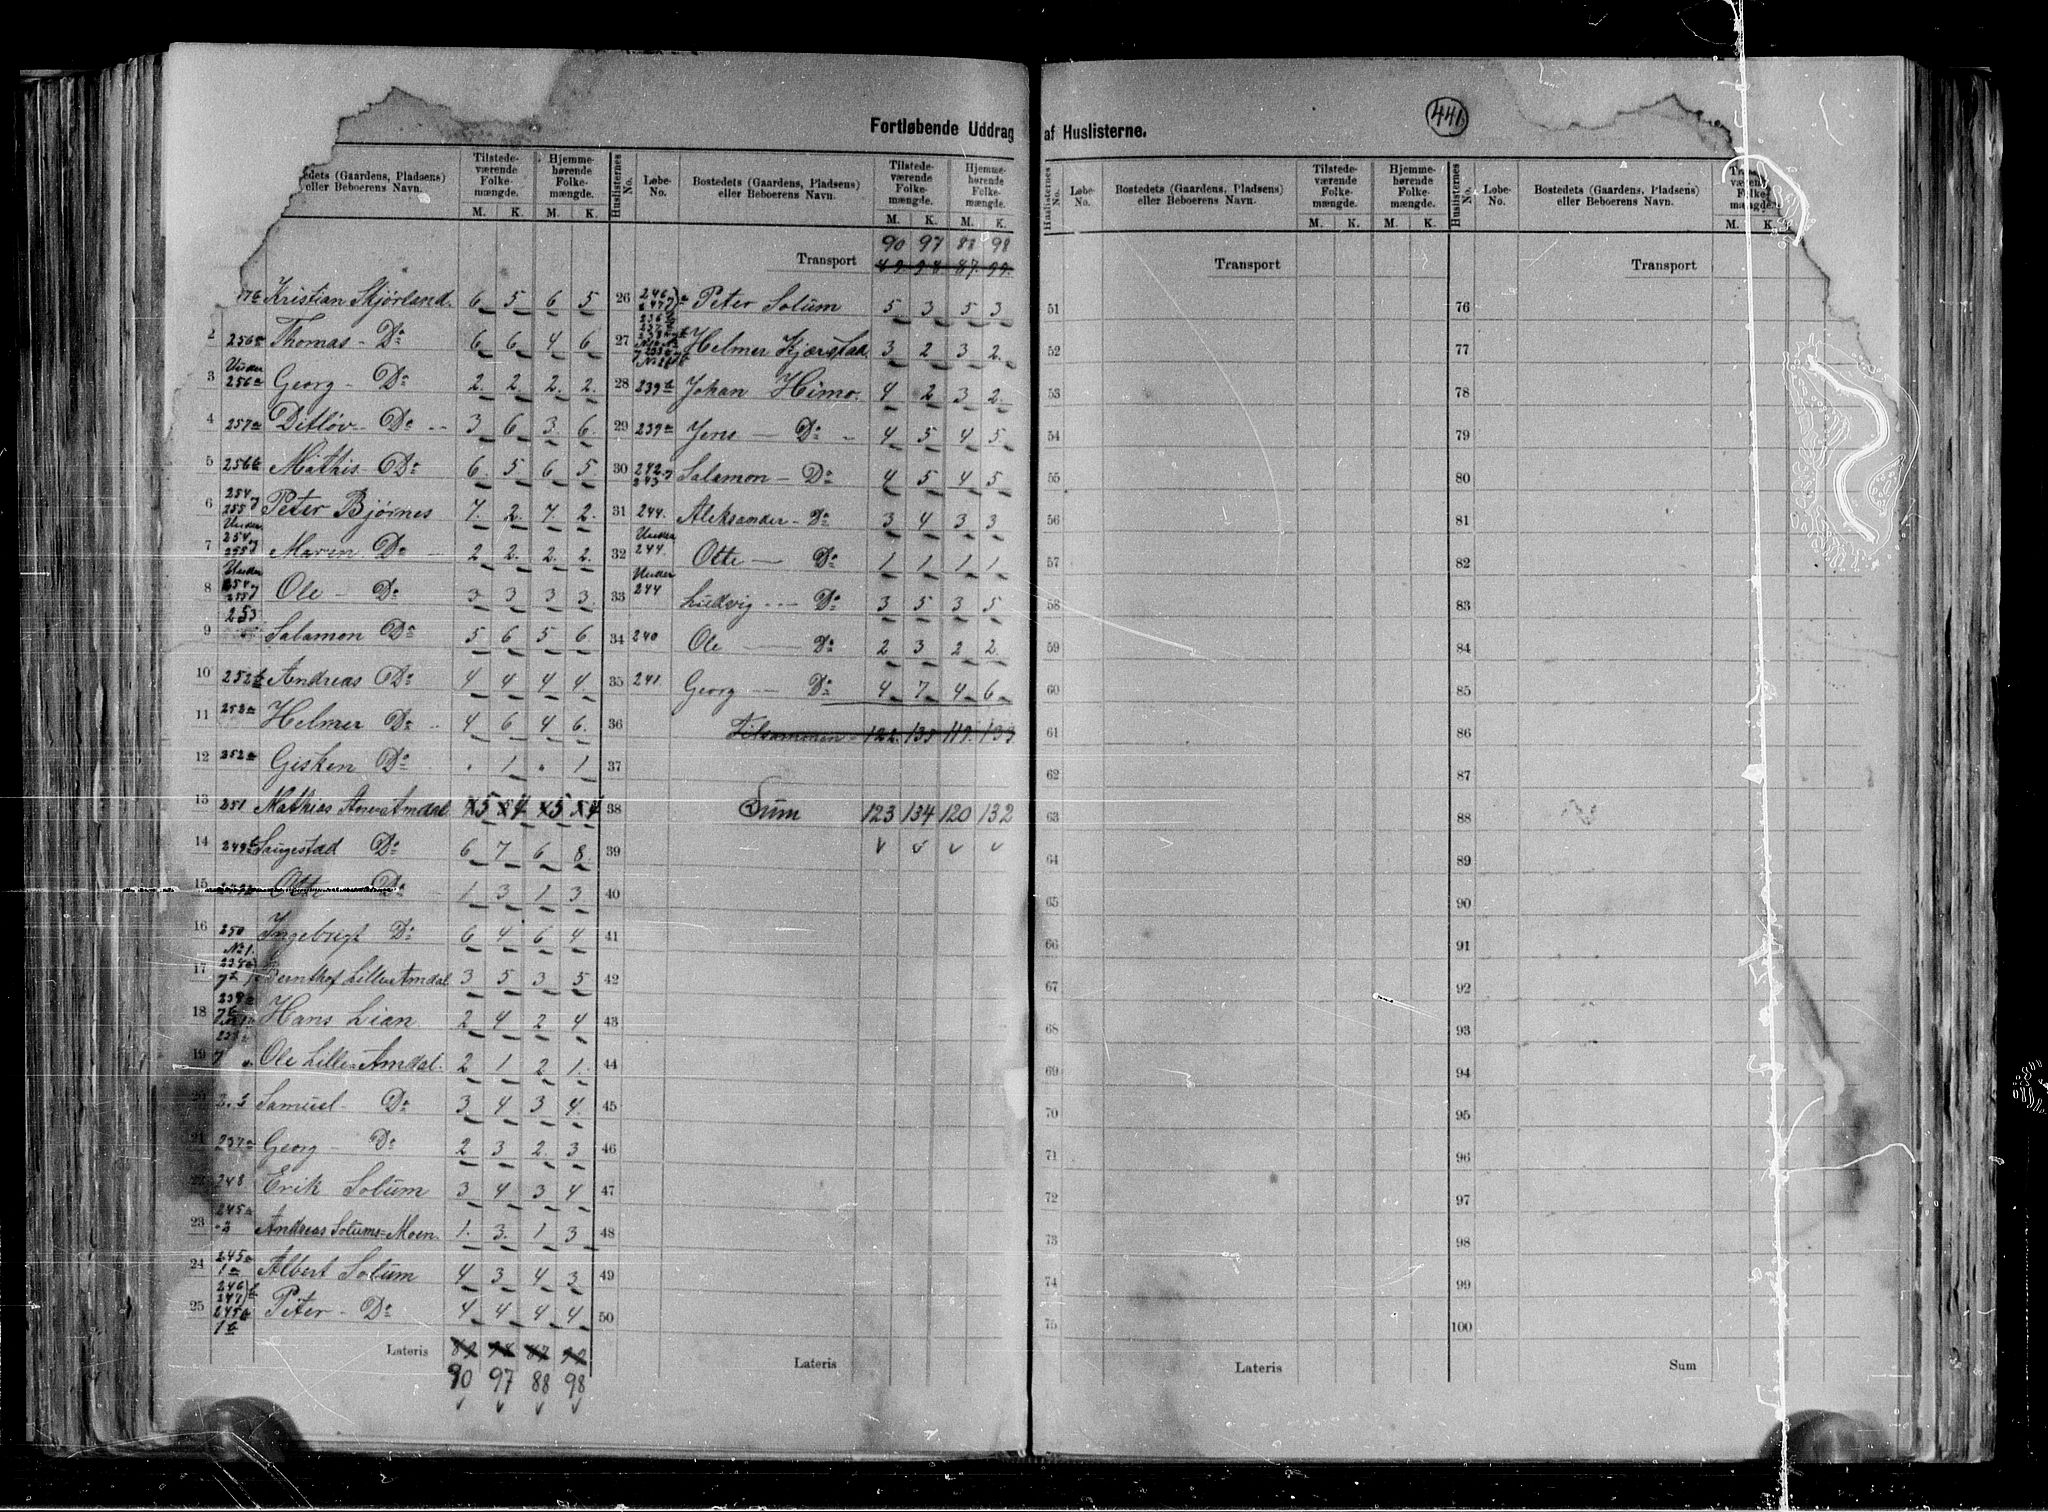 441.
Fortløbende Uddrag af Huslisterne.
edets (Gaardens, Pladsens) eller Beboerens Navn. Tilstede-værende Folke-mængde. M. K. Hjemme-hørende Folke-mængde. M. K.
Kristian Skjørland. 6 5 6 5
2 256 Thomas - Do 6 6 4 6
3 Under 256a Georg - Do 2. 2. 2. 2.
4 257a Ditløv - Do 3 6 3 6.
5 256b Mathis - Do 6. 5 6 5.
6 254, 255 Peter Bjørnes 7. 2. 7 2.
7 Under 254, 255 Maren Do 2 2. 2. 2.
8 Under 254 255 Ole - Do 3 3 3 3.
9 253 Salamon Do 5 6 5 6.
10 252b Andreas Do 4 4 4 4.
11 252a Helmer Do 4 6 4 6.
12 252a Gisken Do . 1 . 1
13 251 Mathias Store Amdal 5 4 5 4
14 249 Saugestad Do 6 7 6 8.
15 Otte Do 1 3 1 3
16 250 Ingebrigt Do 6 4 6 4
17 No 1. Bernthof Lille Amdal 3 5 3 5
18 Hans Lian 2 4 2 4
19 Ole Lille Amdal. 2 1 2 1.
Samuel - Do 3. 4 3 4.
21 237a Georg - Do 2 3 2. 3
248 Erik Solum 3 4 3 4
23 245a Andreas Solums-Moen. 1. 3. 1 3
24 245a 1a Albert Solum 4 3 4 3
25 246 247 245a 1b Peter - Do 4 4 4 4
Lateris 89 98 87 99
90 97 88 98
Huslisternes No. Løbe-No. Bostedets (Gaardens, Pladsens) eller Beboerens Navn. Tilstede-værende Folke-mængde. M. K. Hjemme-hørende Folke-mængde. M. K.
90 97 88 98
Transport 89. 98 87. 99.
26 246 247 Peter Solum 5 3 5 3
27 Helmer Kjærstad 3 2 3 2.
28 239b Johan Himo. 4 2 3 2.
29 239a Jens - Do 4 5 4 5
30 242, 243 Salamon - Do 4 5 4 5
31 244. Aleksander - Do 3 4 3 3
32 Under 244. Otte - Do 1 1 1 1
33 Under 244 Ludvig - Do 3 5 3 5
34 240 Ole - Do 2 3 2 2.
35 241 Georg - Do 4 7 4 6
36 Tilsammen 122. 135 119. 133
37
38 Sum 123 134 120 132
39
40
41
42
43
44
45
46
47
48
49
50
Lateris
Huslisternes No. Løbe-No. Bostedets (Gaardens, Pladsens) eller Beboerens Navn. Tilstede-værende Folke-mængde. M. K. Hjemme-hørende Folke-mængde. M. K.
Transport
51
52
53
54
55
56
57
58
59
60
61
62
63
64
65
66
67
68
69
70
71
72
73
74
75
Lateris
Huslisternes No. Løbe-No. Bostedets (Gaardens, Pladsens) eller Beboerens Navn. værende Folke-mængde. M. K.
Transport
76
77
78
79
80
81
82
83
84
85
86
87
88
89
90
91
92
93
94
95
96
97
98
99
100
Sum